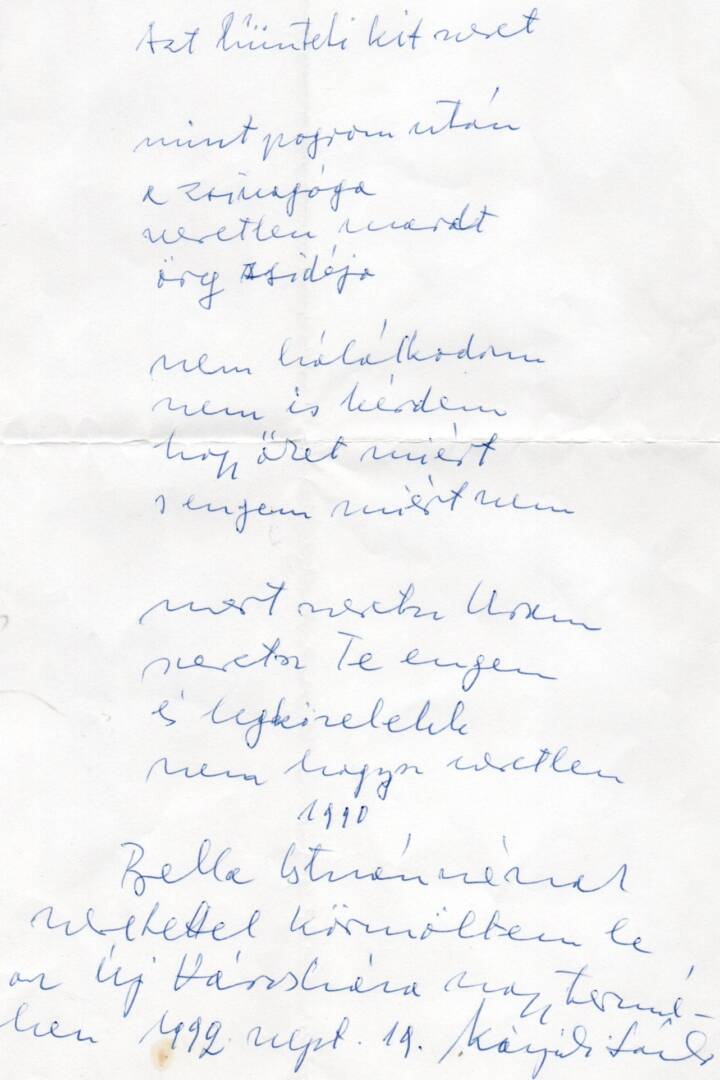 Azt bünteti kit szeret
mint pogrom után
a zsinagóga
veretlen maradt
öreg zsidója
nem hálálkodom
nem is kérdem
hogy őket miért
s engem miért nem
mert szeretsz Uram
szeretsz Te engem
és legközelebb
nem hagysz veretlen
1990
Bella Istvánnénak
szeretettel körmöltem le
az Új Városháza nagytermé-
ben 1992. szept. 19. Kárpáti